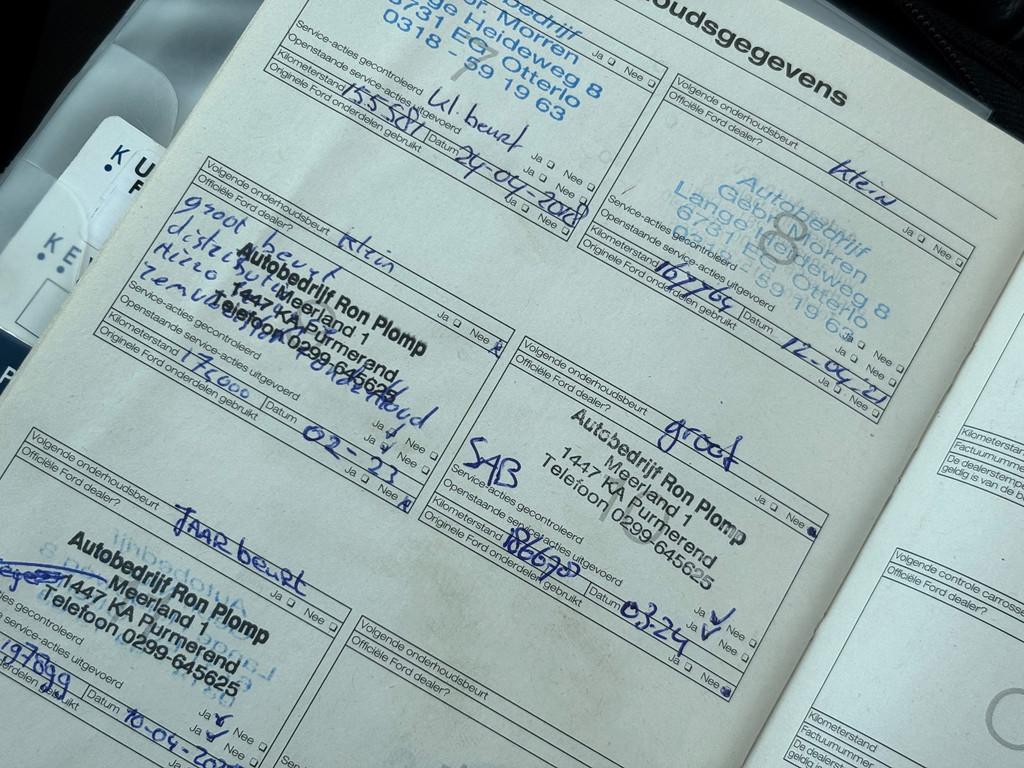 oudsgegevens
bedrijf
r. Morren
ge Heideweg 8
6731 EG Otterlo
0318 - 59 19 63
7
Ja Nee
Service-acties gecontroleerd
Openstaande service-acties uitgevoerd
Kl. beurt
Ja Nee
Ja Nee
Kilometerstand 155581 Datum
Originele Ford onderdelen gebruikt Ja Nee
Volgende onderhoudsbeurt Klein
Officiële Ford dealer? Ja Nee
8
Autobedrijf
Gebr. Morren
Lange Heideweg 8
6731 EG Otterlo
0318 - 59 19 63
Service-acties gecontroleerd Ja Nee
Openstaande service-acties uitgevoerd Ja Nee
Kilometerstand Datum 12-04-21
Originele Ford onderdelen gebruikt Ja Nee
Volgende onderhoudsbeurt Klein
Officiële Ford dealer? Ja Nee
groot beurt
Autobedrijf Ron Plomp
Meerland 1
1447 KA Purmerend
Telefoon 0299-645625
Service-acties gecontroleerd Ja Nee
Openstaande service-acties uitgevoerd Ja Nee
Kilometerstand 175000 Datum 02-23
Originele Ford onderdelen gebruikt Ja Nee
Volgende onderhoudsbeurt groot
Officiële Ford dealer? Ja Nee
Autobedrijf Ron Plomp
Meerland 1
1447 KA Purmerend
Telefoon 0299-645625
Service-acties gecontroleerd Ja Nee
Openstaande service-acties uitgevoerd Ja Nee
Kilometerstand 186670 Datum 03-24
Originele Ford onderdelen gebruikt Ja Nee
Volgende onderhoudsbeurt JAAR beurt
Officiële Ford dealer? Ja Nee
Autobedrijf Ron Plomp
Meerland 1
1447 KA Purmerend
Telefoon 0299-645625
ies gecontroleerd Ja Nee
service-acties uitgevoerd Ja Nee
197899 Datum
onderdelen gebruikt Ja
Volgende onderhoudsbeurt
Officiële Ford dealer?
Ja Nee
Kilometerstan
Factuurnummer
De dealerstempe
geldig is van de b
Volgende controle carross
Officiële Ford dealer?
Kilometerstand
Factuurnummer
De dealers
geldig is